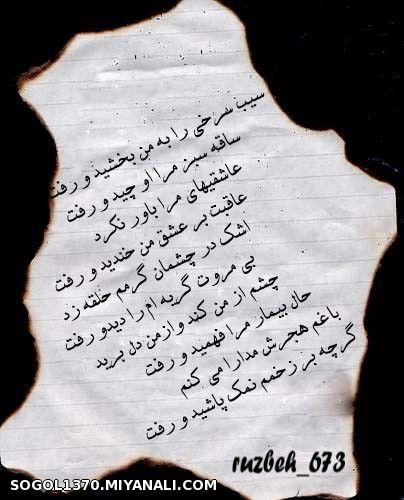 سیب سرخی را به من بخشید و رفت
ساقه سبز مرا او چید و رفت
عاشقیهای مرا باور نکرد
عاقبت بر عشق من خندید و رفت
اشک در چشمان گرمم حلقه زد
بی مروت گریه ام را دید و رفت
چشم از من کند و از من دل برید
حال بیمار مرا فهمید و رفت
با غم هجرش مدارا می کنم
گر چه بر زخمم نمک پاشید و رفت
ruzbeh_673
SOGOL1370.MIYANALI.COM